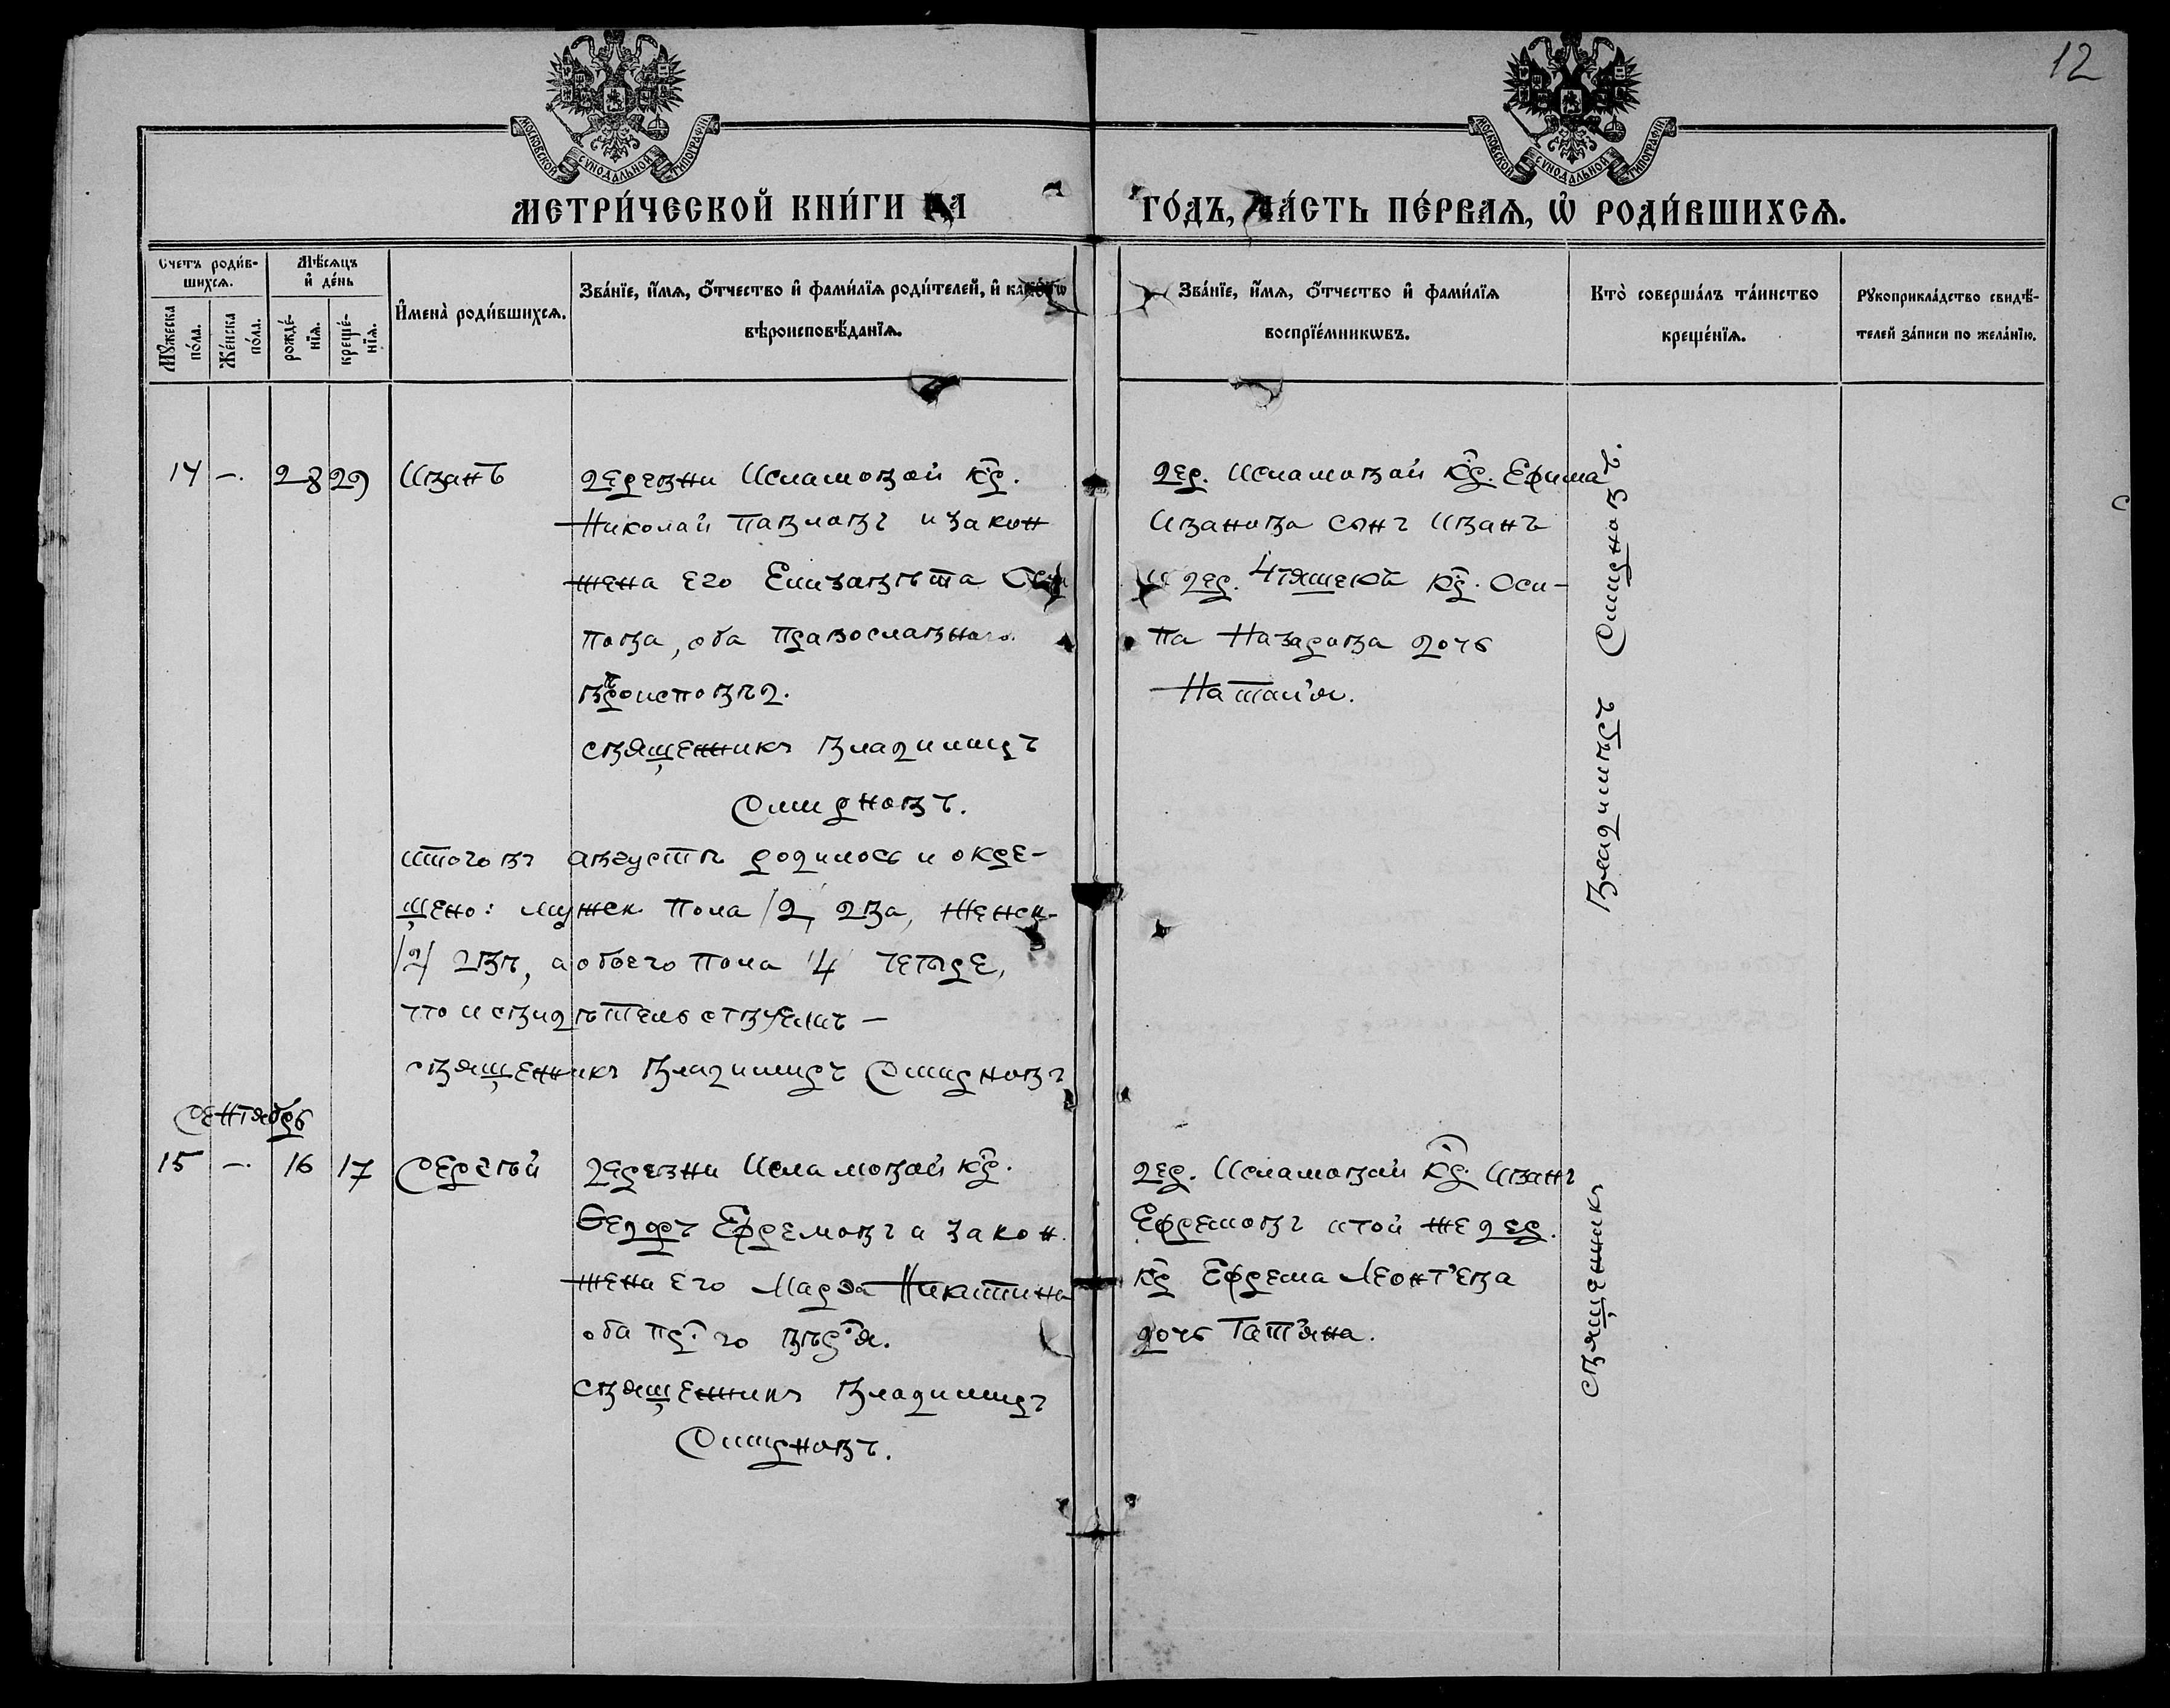 12
МОСКОВСКОЙ СУНОДАЛЬНОЙ ТИПОГРАФІИ
МОСКОВСКОЙ СУНОДАЛЬНОЙ ТИПОГРАФІИ
МЕТРИ́ЧЕСКОЙ КНИ́ГИ НА
ГО́ДЪ, ЧА́СТЬ ПЕ́РВАЯ, Ѽ РОДИ́ВШИХСЯ.
Счетъ роди́в-
шихся.
Мꙋ́жеска
по́ла.
Же́нска
по́ла.
Мѣ́сяцъ
и҆ де́нь
рожде́-
нїя.
креще́-
нїя.
И҆мена̀ роди́вшихся.
Зва́нїе, и҆́мя, ѻ҆́тчество и҆ фами́лїя роди́телей, и҆ како́гѡ
вѣроисповѣ́данїя.
Зва́нїе, и҆́мя, ѻ҆́тчество и҆ фами́лїя
воспрїе́мникѡвъ.
Кто̀ соверша́лъ та́инство
креще́нїя.
Рꙋкоприкла́дство свидѣ́-
телей за́писи по жела́нїю.
14 –. 28 29 Иванъ
деревни Исламовой кр.
Николай Павловъ и закон
жена его Елизавѣта Оси
пова, оба православного
вѣроисповѣд.
священникъ Владимиръ
Смирновъ.
дер. Исламовой кр. Ефима
Иванова сынъ Иванъ
и дер. кр. Оси-
па Назарова дочь
Наталія.
итого въ августѣ родилось и окре-
щено: мужск. пола /2/ два, женск-
/2/ двѣ, а обоего пола /4/ четыре,
что и свидѣтельствуемъ –
священникъ Владимиръ Смирновъ
Сентябрь
15 –. 16 17 Сергѣй
деревни Исламовой кр.
Ѳедоръ Ефремовъ и закон.
жена его Марѳа Никитина
оба пр. го вѣр. я.
священникъ Владимиръ
Смирновъ.
дер. Исламовой кр. Иванъ
Ефремовъ и той же дер.
кр Ефрема Леонтьева
дочь Татіяна.
священникъ Владимиръ Смирновъ.